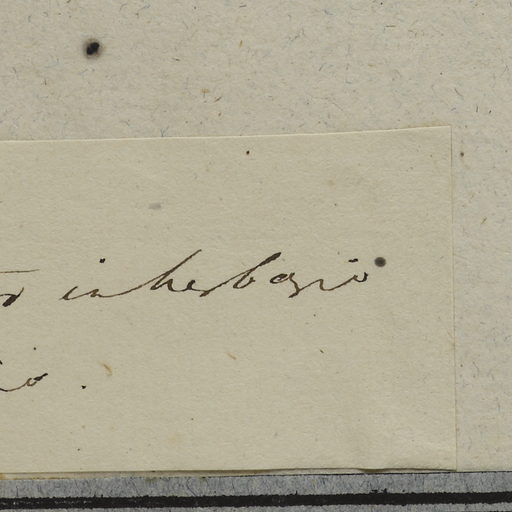 in herbario
io.